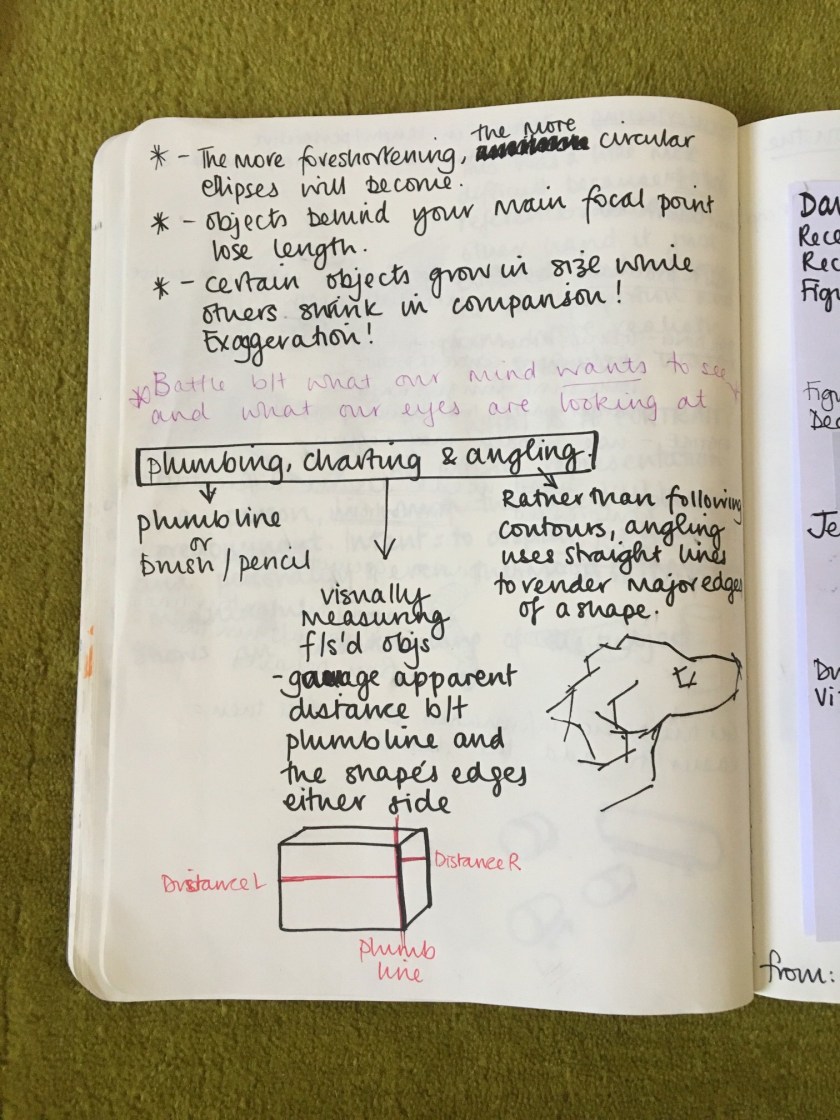 * - The more foreshortening, the more circular
ellipses will become.
* - objects behind your main focal point
lose length.
* - certain objects grow in size while
others shrink in comparison!
Exaggeration!
* Battle b/t what our mind wants to see *
and what our eyes are looking at
plumbing, charting & angling.
plumbline
or
brush / pencil
visually
measuring
f/s'd objs
- gauage apparent
distance b/t
plumbline and
the shape's edges
either side
Rather than following
contours, angling
uses straight lines
to render major edges
of a shape.
Distance L
Distance R
plumb
line
Rece
Rec
Figu
Figu
Dec
Je
Vi
from: